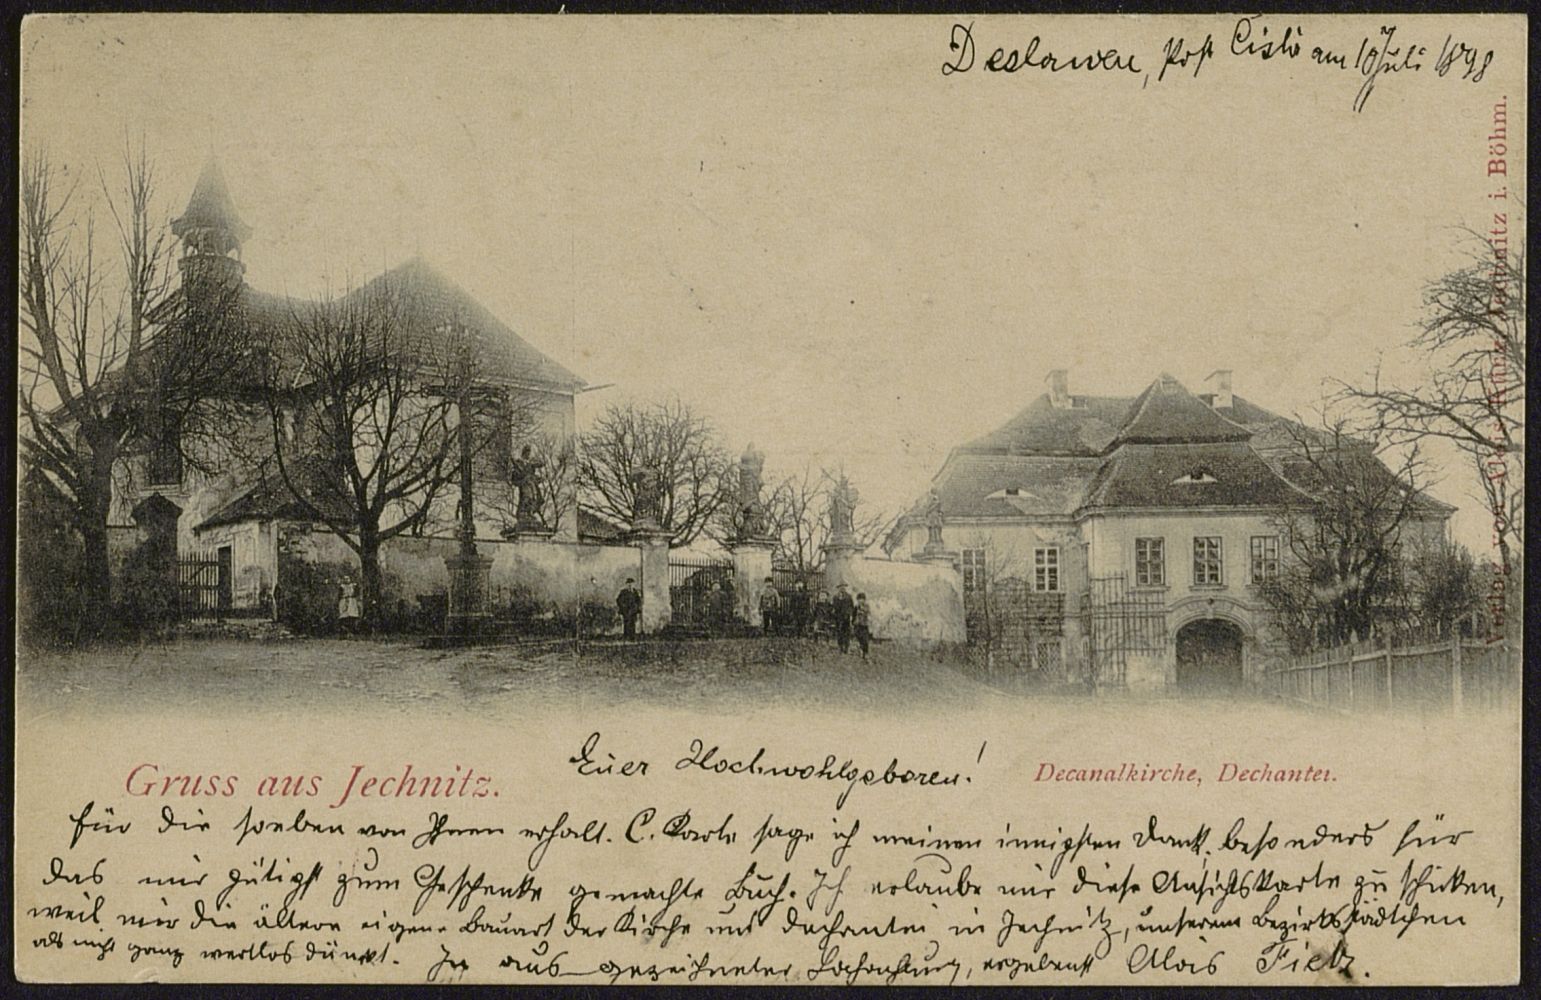 Deslawen, Post Cistá am 10 Juli 1898
Verlag von Alois Kunz, Jechnitz i. Böhm.
Gruss aus Jechnitz.
Euer Hochwohlgeboren!
Decanalkirche, Dechantei.
für die soeben von Ihnen erhalt. C. Karte sage ich meinen innigsten Dank, besonders für
das mir gütigst zum Geschenke gemachte Buch. Ich erlaube mir diese Ansichtskarte zu schicken,
weil mir die ältere eigene Bauart der Kirche und Dechantei in Jechnitz, unserem Bezirksstädtchen
als nicht ganz wertlos dünkt. In ausgezeichneter Hochachtung, ergebenst Alois Fietz.